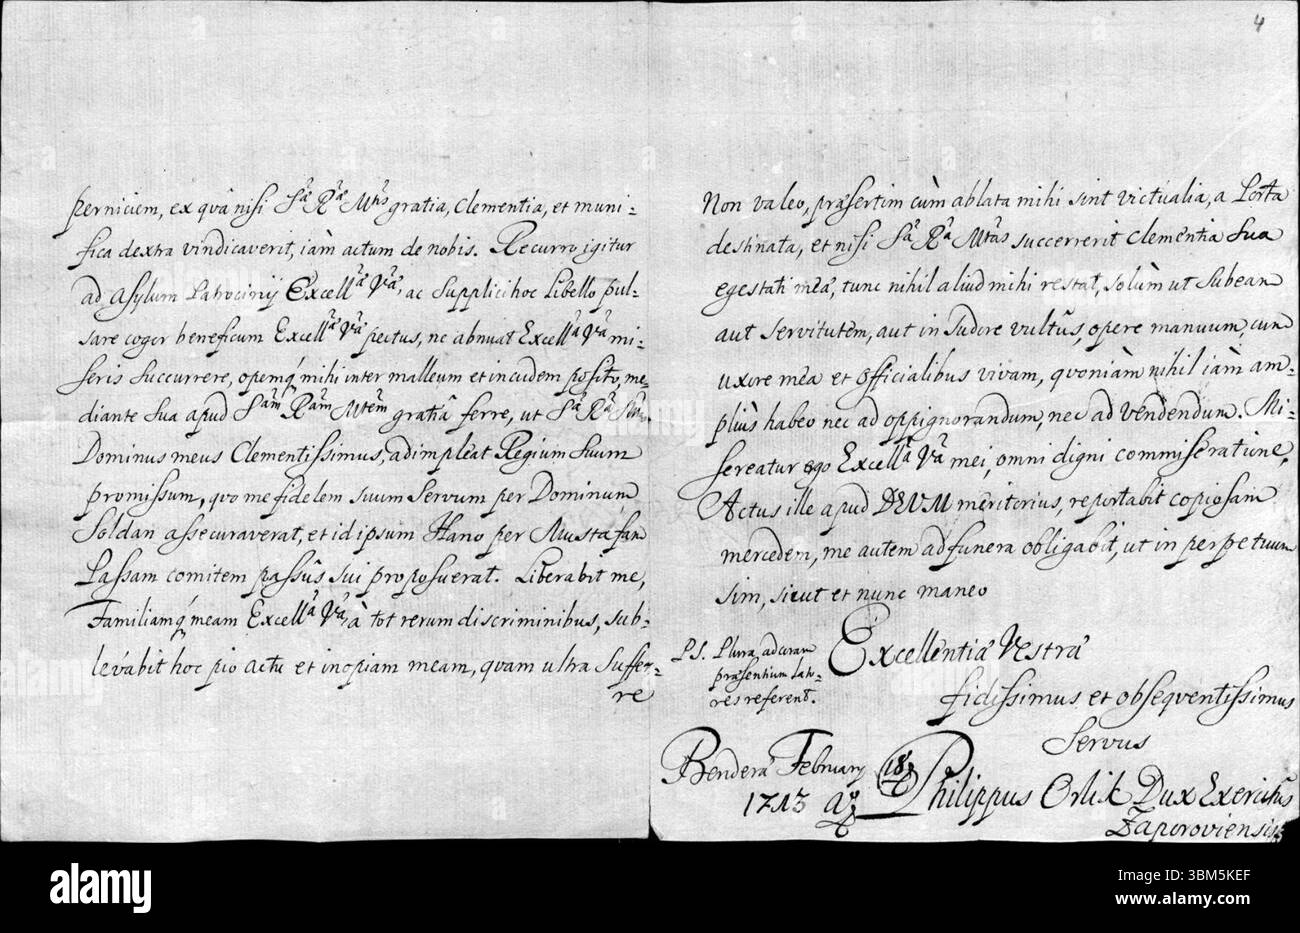 4
perniciem, ex quâ nisi Sᵃ Rᵃ Mᵗⁱˢ gratia, Clementia, et muni-
fica dextra vindicaverit, iàm actum de nobis. Recurro igitur
ad Asylum Patrocinij Excellᵃ Vᵃ, ac Supplici hoc Libello pul-
sare cogor beneficum Excellᵃ Vᵃ pectus, ne abnuat Excellᵃ Vᵃ mi-
seris succurrere, opemq́ mihi inter malleum et incudem posito, me-
diante sua apud Sᵃᵐ Rᵃᵐ Mᵗᵉᵐ gratiâ ferre, ut Sᵃ Rᵃ
Dominus meus Clementissimus, adimpleat Regium suum
promissum, quo me fidelem suum Servum per Dominum
Soldan assecuraverat, et id ipsum Hano per Mustafam
Passam comitem passûs sui proposuerat. Liberabit me,
Familiamq́ meam Excellᵃ Vᵃ, à tot rerum discriminibus, sub-
levabit hoc pio actu et inopiam meam, quam ultra suffer-
re
Non valeo, præsertim cùm ablata mihi sint victualia, a Porta
destinata, et nisi Sᵃ Rᵃ Mᵗᵃˢ succurrerit Clementia sua
egestati meæ, tunc nihil aliud mihi restat, solùm ut subeam
aut servitutem, aut in sudore vultûs, opere manuum, cum
uxore mea et Officialibus vivam, quoniàm nihil iàm am-
pliùs habeo nec ad oppignorandum, nec ad vendendum. Mi-
sereatur ergo Excellᵃ Vᵃ mei, omni digni commiseratione,
Actus ille apud DEUM meritorius, reportabit copiosam
mercedem, me autem ad funera obligabit, ut in perpetuum
sim, sicut et nunc maneo
Excellentiæ Vestræ
PS. Plura, ad coram
præsentium lato-
res referent.
fidissimus et obsequentissimus
Servus
Benderæ February 18
1713 Aº
Philippus Orlik Dux Exercitûs
Zaporoviensis
alamy
Image ID: 3BM5KEF
www.alamy.com